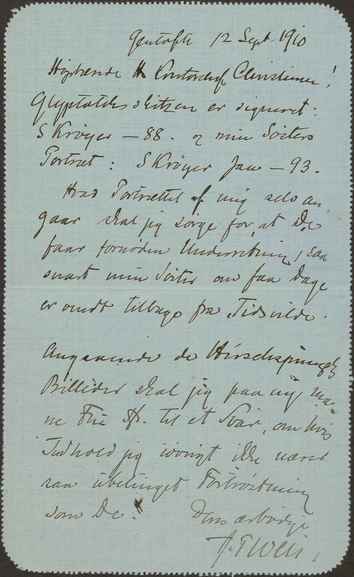 Gentofte 12 Sept 1910
Højtærede Hr Kontorchef Christensen!
Glyptotekskitzen er signeret:
S Krøyer – 88. og min Søsters
Portræt: S Krøyer Jan – 93.
Hvad Portrættet af mig selv an,
gaar skal jeg sørge for, at De
faar fornøden Underretning, saa
snart min Søster om faa Dage
er vendt tilbage fra Tidsvilde.
Angaaende de Hirschsprungske
Billeder skal jeg paa ny
Fru H. til et Svar, om hvis
Indhold jeg iøvrigt ikke nærer
saa ubetinget Fortrøstning
som De.
Deres ærbødige